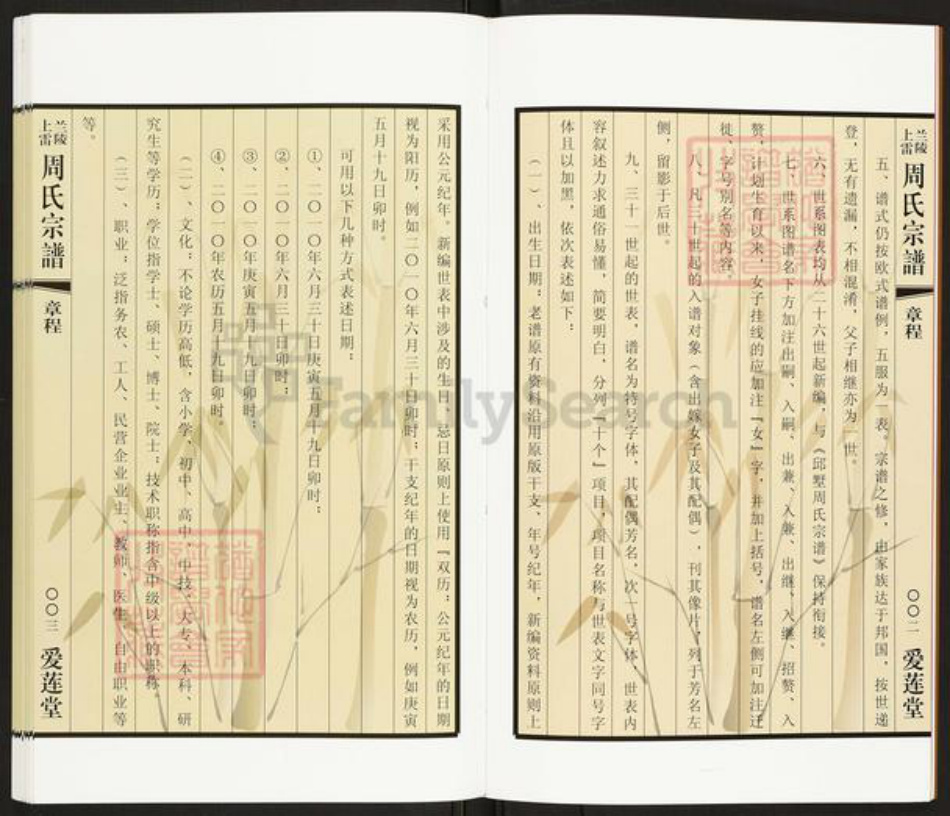 兰陵
上雷
周氏宗譜
章程
〇〇二
爱莲堂
五、谱式仍按欧式谱例，五服为一表。宗谱之修，由家族达于邦国，按世递
登，无有遗漏，不相混淆，父子相继亦为一世。
六、世系图表均从二十六世起新编，与《邱墅周氏宗谱》保持衔接。
七、世系图谱名下方加注出嗣、入嗣、出兼、入兼、出继、入继、招赘、入
赘，计划生育以来，女子挂线的应加注『女』字，并加上括号，谱名左侧可加注迁
徙、字号别名等内容。
八、凡三十世起的入谱对象（含出嫁女子及其配偶），刊其像片，列于芳名左
侧，留影于后世。
九、三十一世起的世表，谱名为特号字体，其配偶芳名，次一号字体，世表内
容叙述力求通俗易懂，简要明白，分列『十个』项目，项目名称与世表文字同号字
体且以加黑，依次表述如下：
（一）、出生日期：老谱原有资料沿用原版干支、年号纪年，新编资料原则上
采用公元纪年。新编世表中涉及的生日、忌日原则上使用『双历：公元纪年的日期
视为阳历，例如二〇一〇年六月三十日卯时；干支纪年的日期视为农历，例如庚寅
五月十九日卯时。
可用以下几种方式表述日期：
①、二〇一〇年六月三十日庚寅五月十九日卯时；
②、二〇一〇年六月三十日卯时；
③、二〇一〇年庚寅五月十九日卯时；
④、二〇一〇年农历五月十九日卯时。
（二）、文化：不论学历高低，含小学、初中、高中、中技、大专、本科、研
究生等学历；学位指学士、硕士、博士、院士；技术职称指含中级以上的职称。
（三）、职业：泛指务农、工人、民营企业业主、教师、医生、自由职业等
等。
兰陵
上雷
周氏宗譜
章程
〇〇三
爱莲堂
FamilySearch